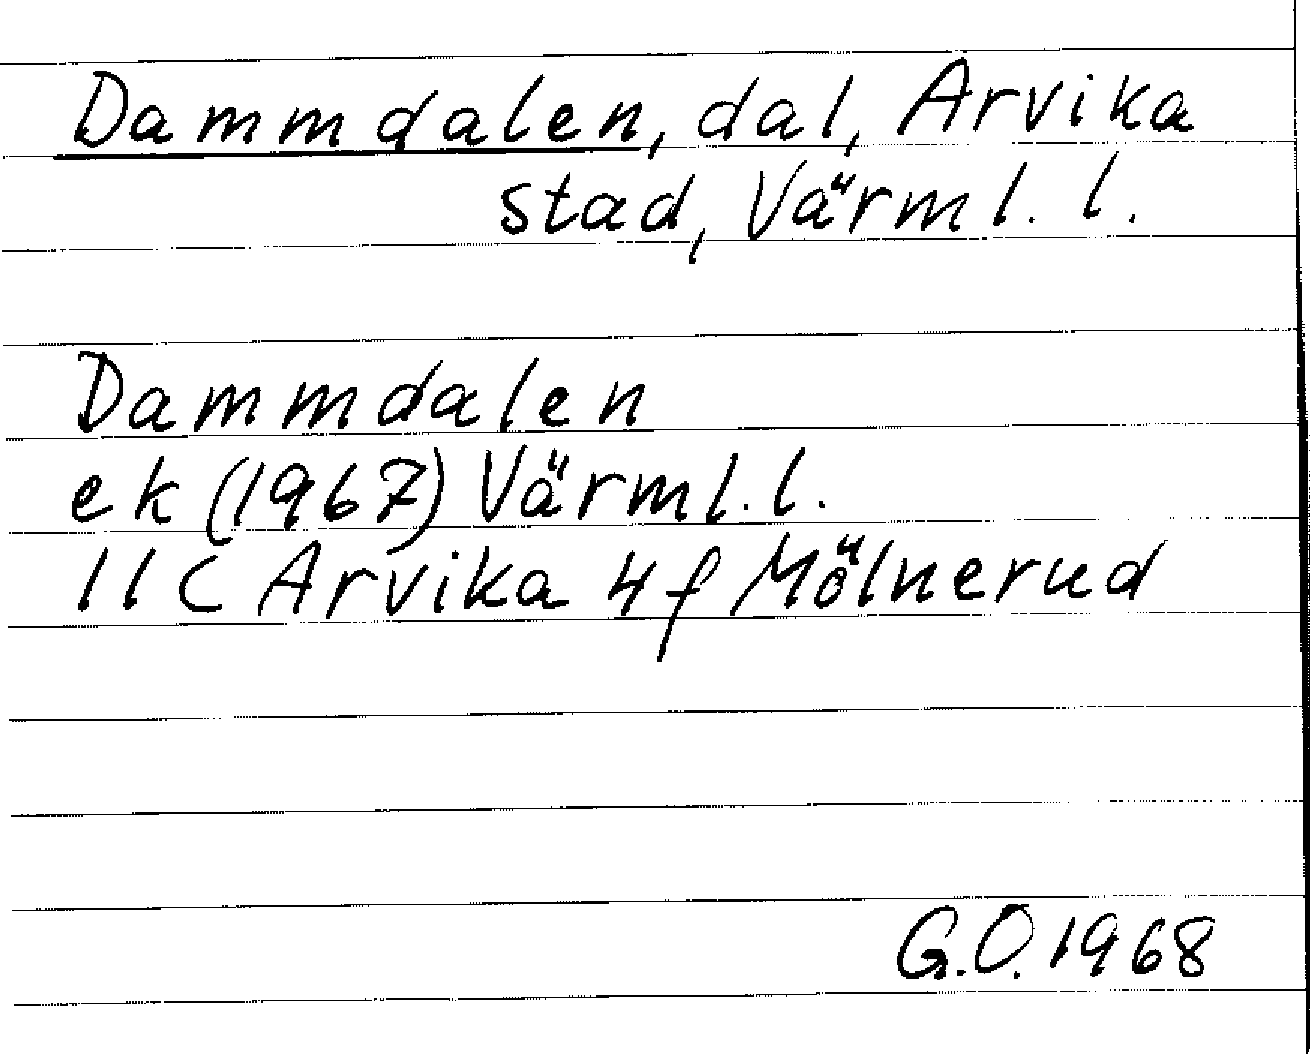 Dammdalen, dal, Arvika
stad, Värml. l.
Dammdalen
ek (1967) Värml. l.
11C Arvika 4f Mölnerud
G.O. 1968